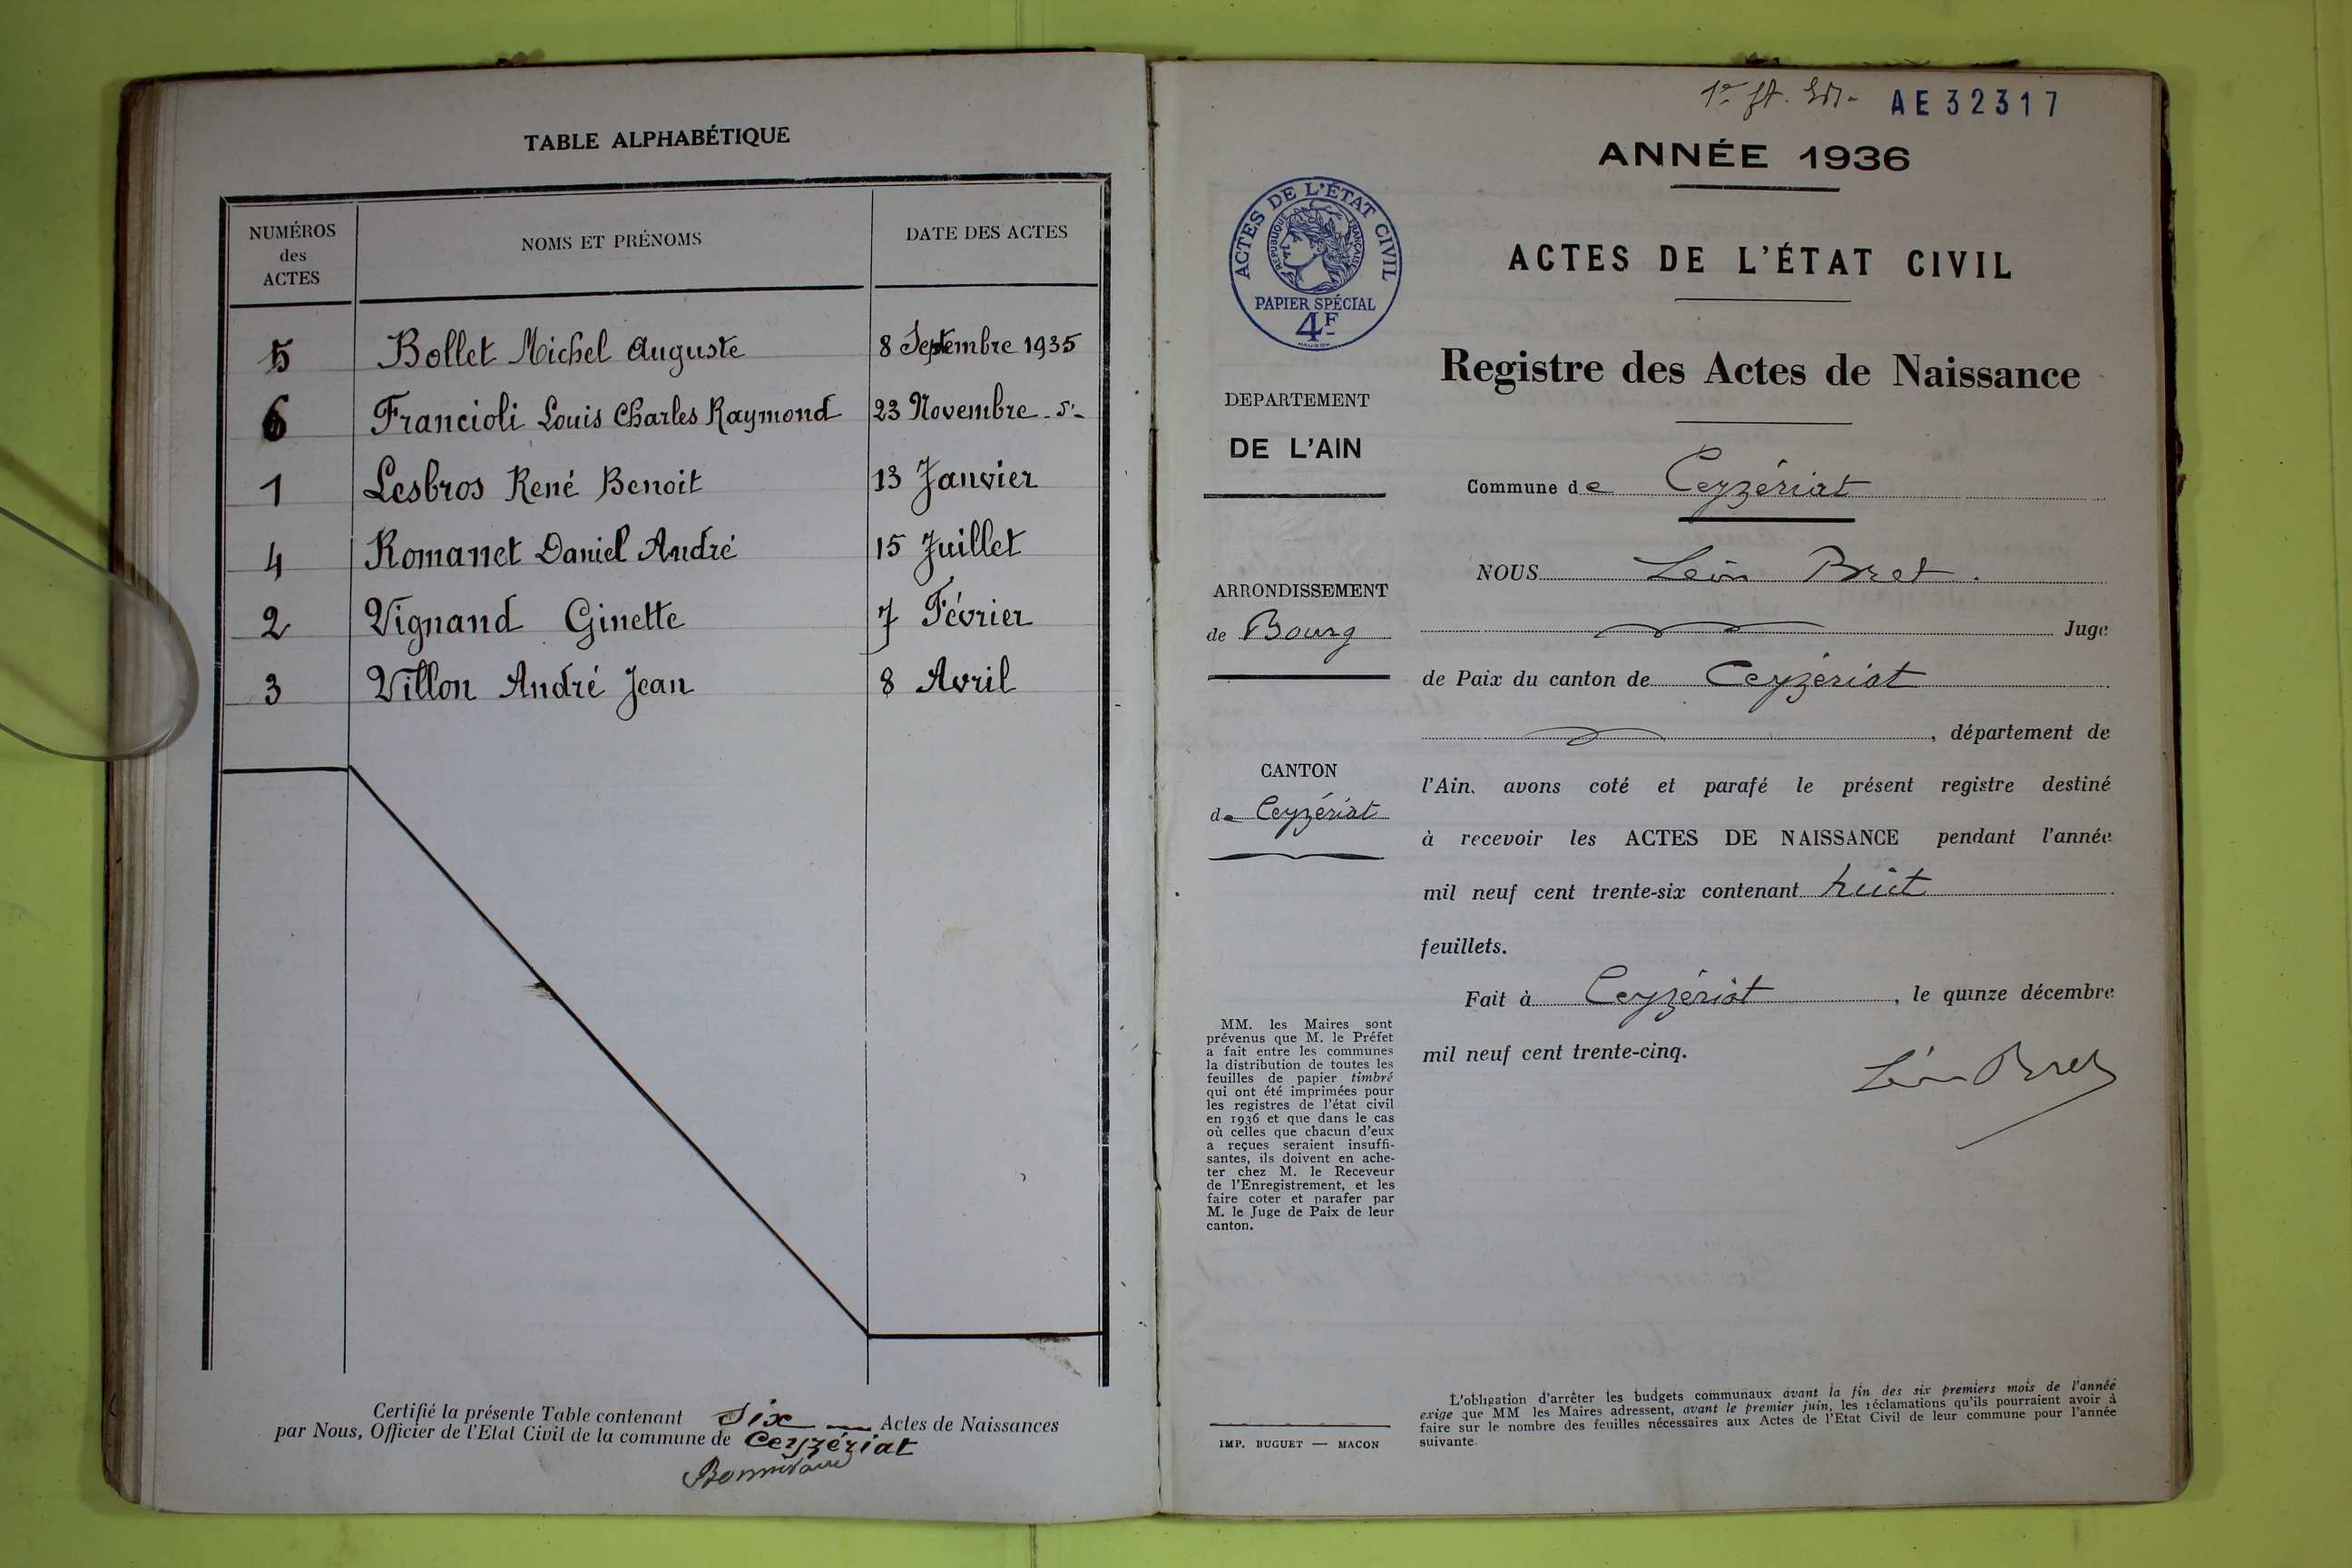 TABLE ALPHABÉTIQUE
NUMÉROS des ACTES
NOMS ET PRÉNOMS
DATE DES ACTES
5 Bollet Michel Auguste 8 Septembre 1935
6 Francioli Louis Charles Raymond 23 Novembre
1 Lesbros René Benoit 13 Janvier
4 Romanet Daniel André 15 Juillet
2 Vignand Ginette 7 Février
3 Villon André Jean 8 Avril
Certifié la présente Table contenant Six Actes de Naissances
par Nous, Officier de l'Etat Civil de la commune de Ceyzériat
AE32317
ANNÉE 1936
ACTES DE L'ÉTAT CIVIL
RÉPUBLIQUE FRANÇAISE
PAPIER SPÉCIAL
4F
ACTES DE L'ÉTAT CIVIL
Registre des Actes de Naissance
DEPARTEMENT
DE L'AIN
ARRONDISSEMENT
de Bourg
CANTON
de Ceyzériat
MM. les Maires sont
prévenus que M. le Préfet
a fait entre les communes
la distribution de toutes les
feuilles de papier timbré
qui ont été imprimées pour
les registres de l'état civil
en 1936 et que dans le cas
où celles que chacun d'eux
a reçues seraient insuffi-
santes, ils doivent en ache-
ter chez M. le Receveur
de l'Enregistrement, et les
faire coter et parafer par
M. le Juge de Paix de leur
canton.
IMP. BUGUET — MACON
Commune de Ceyzériat
NOUS Léon Bret.
Juge
de Paix du canton de Ceyzériat
, département de
l'Ain. avons coté et parafé le présent registre destiné
à recevoir les ACTES DE NAISSANCE pendant l'année
mil neuf cent trente-six contenant huit
feuillets.
Fait à Ceyzériat, le quinze décembre
mil neuf cent trente-cinq.
Léon Bret
L'obligation d'arrêter les budgets communaux avant la fin des six premiers mois de l'année
exige que MM les Maires adressent, avant le premier juin, les réclamations qu'ils pourraient avoir à
faire sur le nombre des feuilles nécessaires aux Actes de l'Etat Civil de leur commune pour l'année
suivante.